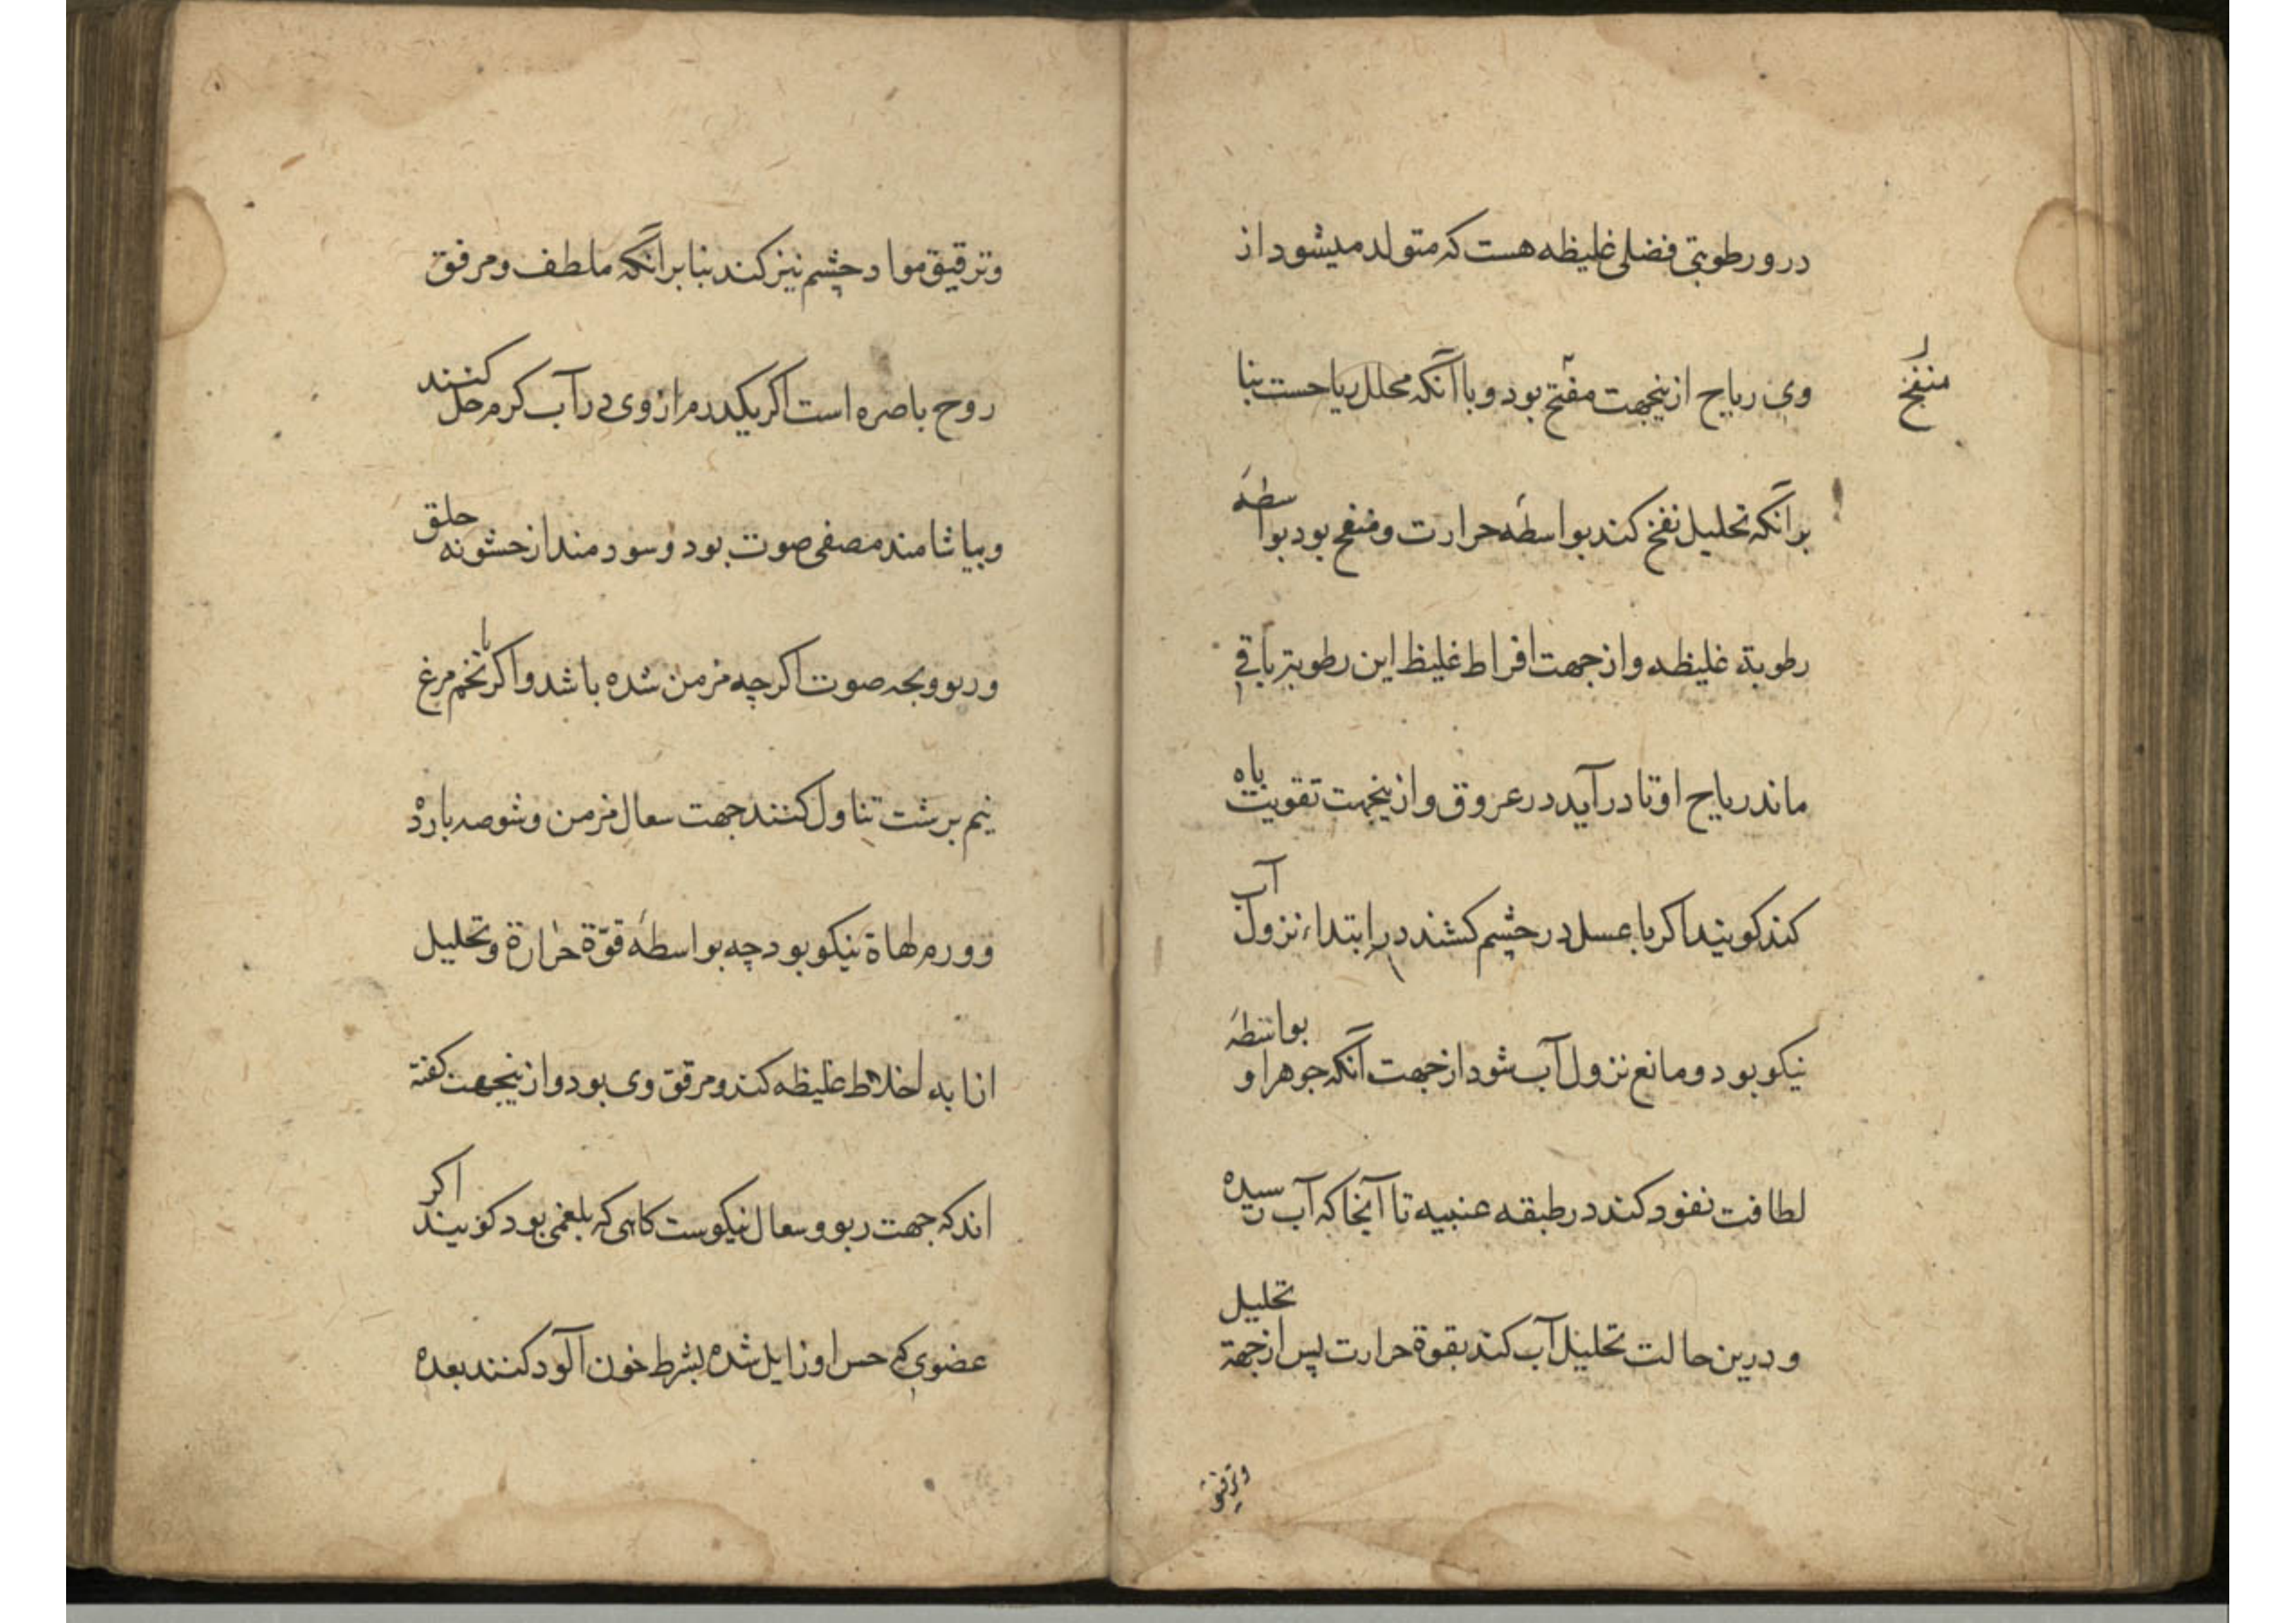 درو رطوبتی فضلی غلیظه هست که متولد میشود از
وی ریاح ازینجهت مفتح بود و با آنکه محلل ریاحست بنا
منفخ
برانکه تحلیل نفخ کند بواسطهٔ حرارت و منفخ بود بواسطهٔ
رطوبة غلیظه و از جهت افراط غلیظ این رطوبة باقی
ماند ریاح او تا در آید در عروق و ازینجهت تقویت باه
کند کویند اکر با عسل در چشم کشند در ابتداء نزول آب
نیکو بود و مانع نزول آب شود از جهت آنکه جوهر او بواسطهٔ
لطافت نفود کند در طبقه عنبیه تا آنجا که آب رسیده
و درین حالت تحلیل آب کند بقوة حرارت پس از جهة تحلیل
وترقیق
وترقیق مواد چشم نیز کند بنا برانکه ملطف و مرقق
روح باصره است اکر یکدرم از وی در آب کرم حل کنند
و بیاشامند مصفی صوت بود و سودمند از خشونه حلق
و ربو و بحه صوت اکرچه مزمن شده باشد و اکر با تخم مرغ
نیم برشت تناول کنند جهت سعال مزمن و شوصه بارد
و ورم لهاة نیکو بود چه بواسطهٔ قوّة حرارة و تحلیل
اذابه اخلاط غلیظه کند و مرقق وی بود و ازینجهت کفته
اند که جهت ربو و سعال نیکوست کاهی که بلغمی بود کویند اکر
عضوی که حس او زایل شده بشرط خون آلود کنند بعده